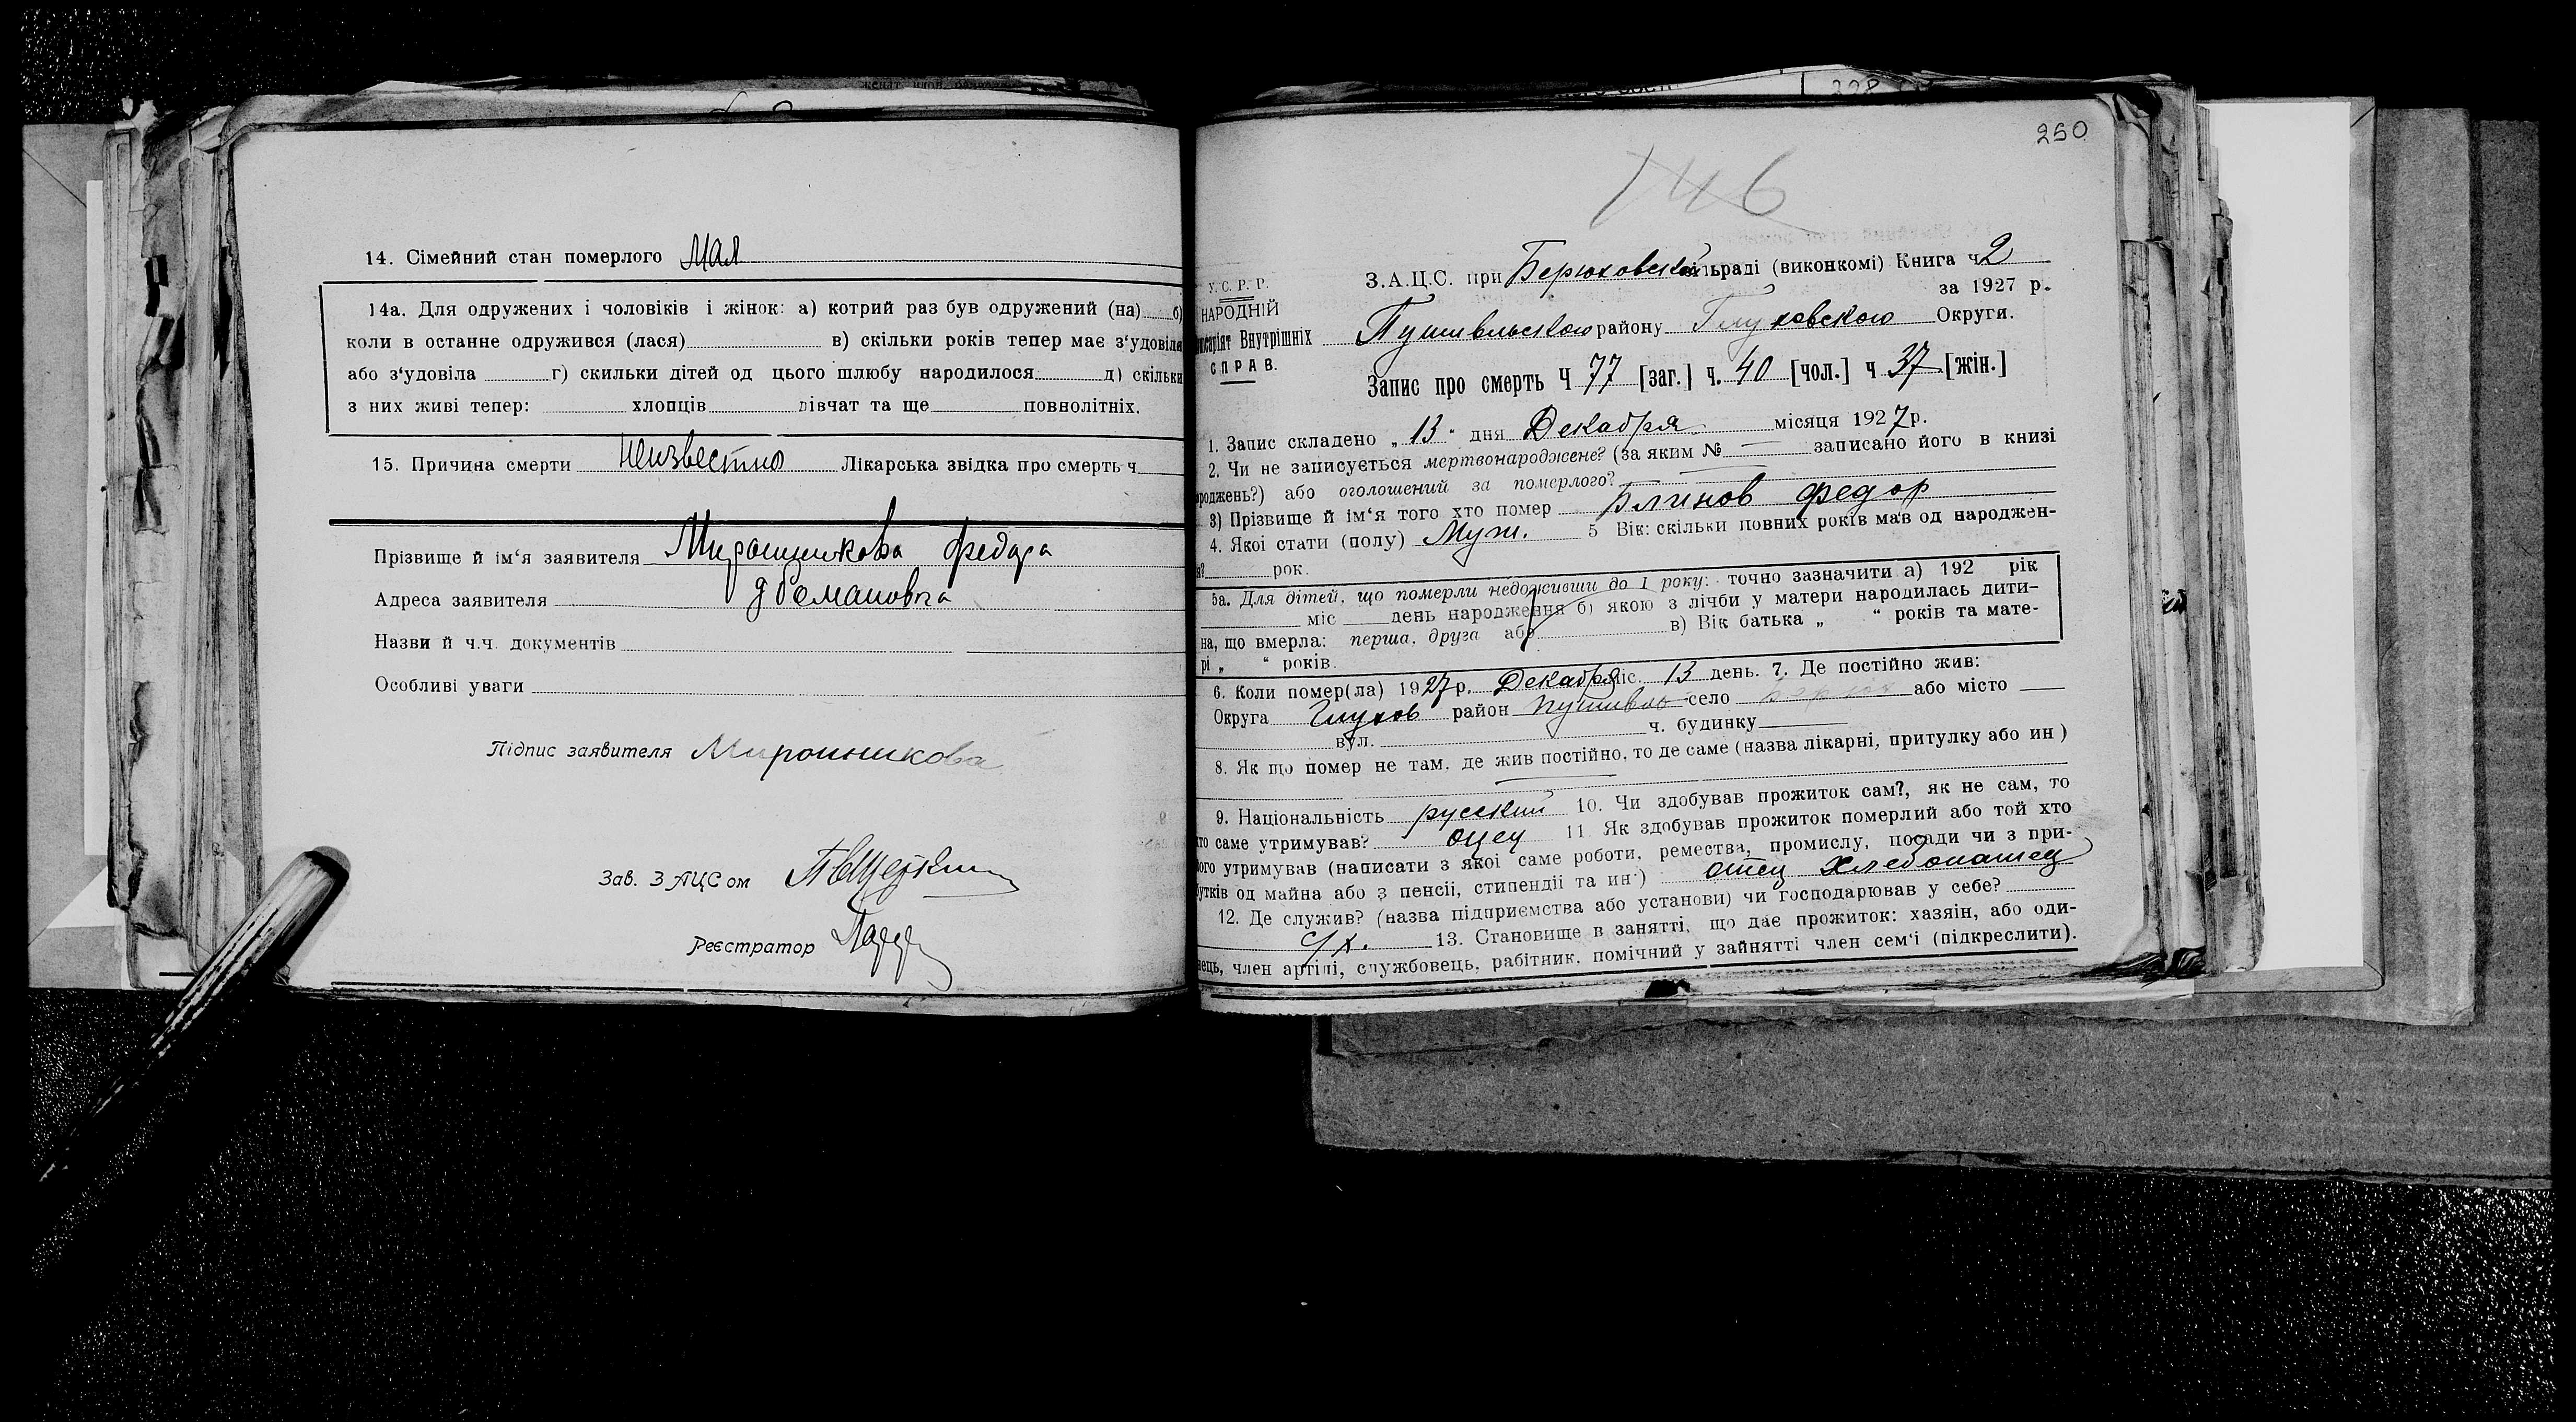 14. Сімейний стан померлого мал
14а. Для одружених і чоловіків і жінок: а) котрий раз був одружений (на) б)
коли в останне одружився (лася) в) скільки років тепер має з'удовіла
або з'удовіла г) скильки дітей од цього шлюбу народилося д) скільки
з них живі тепер: хлопців дівчат та ще повнолітніх.
15. Причина смерти неизвестно Лікарська звідка про смерть ч
Прізвище й ім'я заявителя Федора
Адреса заявителя
Назви й ч.ч. документів
Особливі уваги
Підпис заявителя Мирошникова
Зав. ЗАЦСом
Реєстратор
250
146
У. С. Р. Р.
НАРОДНІЙ
Внутрішніх
СПРАВ.
З.А.Ц.С. при Берюховской сільраді (виконкомі) Книга ч 2
за 1927 р.
Путивльского району Глуховского Округи.
Запис про смерть Ч 77 [заг.] ч. 40 [чол.] ч 37 [жін.]
1. Запис складено „13" дня Декабря місяця 1927 р.
2. Чи не записується мертвонароджене? (за яким № — записано його в книзі
роджень?) або оголошений за померлого?
3) Прізвище й ім'я того хто помер Блинов Федор
4. Якої стати (полу) Муж. 5 Вік: скільки повних років мав од народжен-
я? рок.
5а. Для дітей, що померли недоживши до 1 року: точно зазначити а) 192 рік
міс день народження б) якою з лічби у матери народилась дити-
на, що вмерла: перша, друга або в) Вік батька „ " років та мате-
рі „ " років.
6. Коли помер(ла) 1927 р. Декабря міс. 13 день. 7. Де постійно жив:
Округа Глухов район Путивль село або місто —
вул. ч. будинку
8. Як що помер не там, де жив постійно, то де саме (назва лікарні, притулку або ин)
9. Національність русский 10. Чи здобував прожиток сам?, як не сам, то
хто саме утримував? отец 11. Як здобував прожиток померлий або той хто
його утримував (написати з якоі саме роботи, ремества, промислу, посади чи з при-
бутків од майна або з пенсіі, стипендіі та ин) отец хлебопашец
12. Де служив? (назва підприємства або установи) чи господарював у себе?
13. Становище в занятті, що дає прожиток: хазяін, або оди-
нець, член артілі, службовець, рабітник, помічний у зайнятті член сем'і (підкреслити).